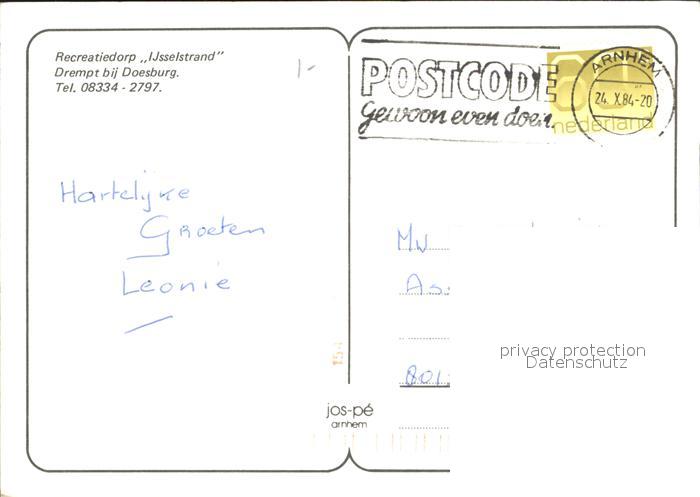 Recreatiedorp „IJsselstrand"
Drempt bij Doesburg.
Tel. 08334 - 2797.
1-
POSTCODE
Gewoon even doen.
nederland
ARNHEM
24. X.84-20
Hartelijke
Groeten
Leonie
Mw
As
801
privacy protection
Datenschutz
jos-pé
arnhem